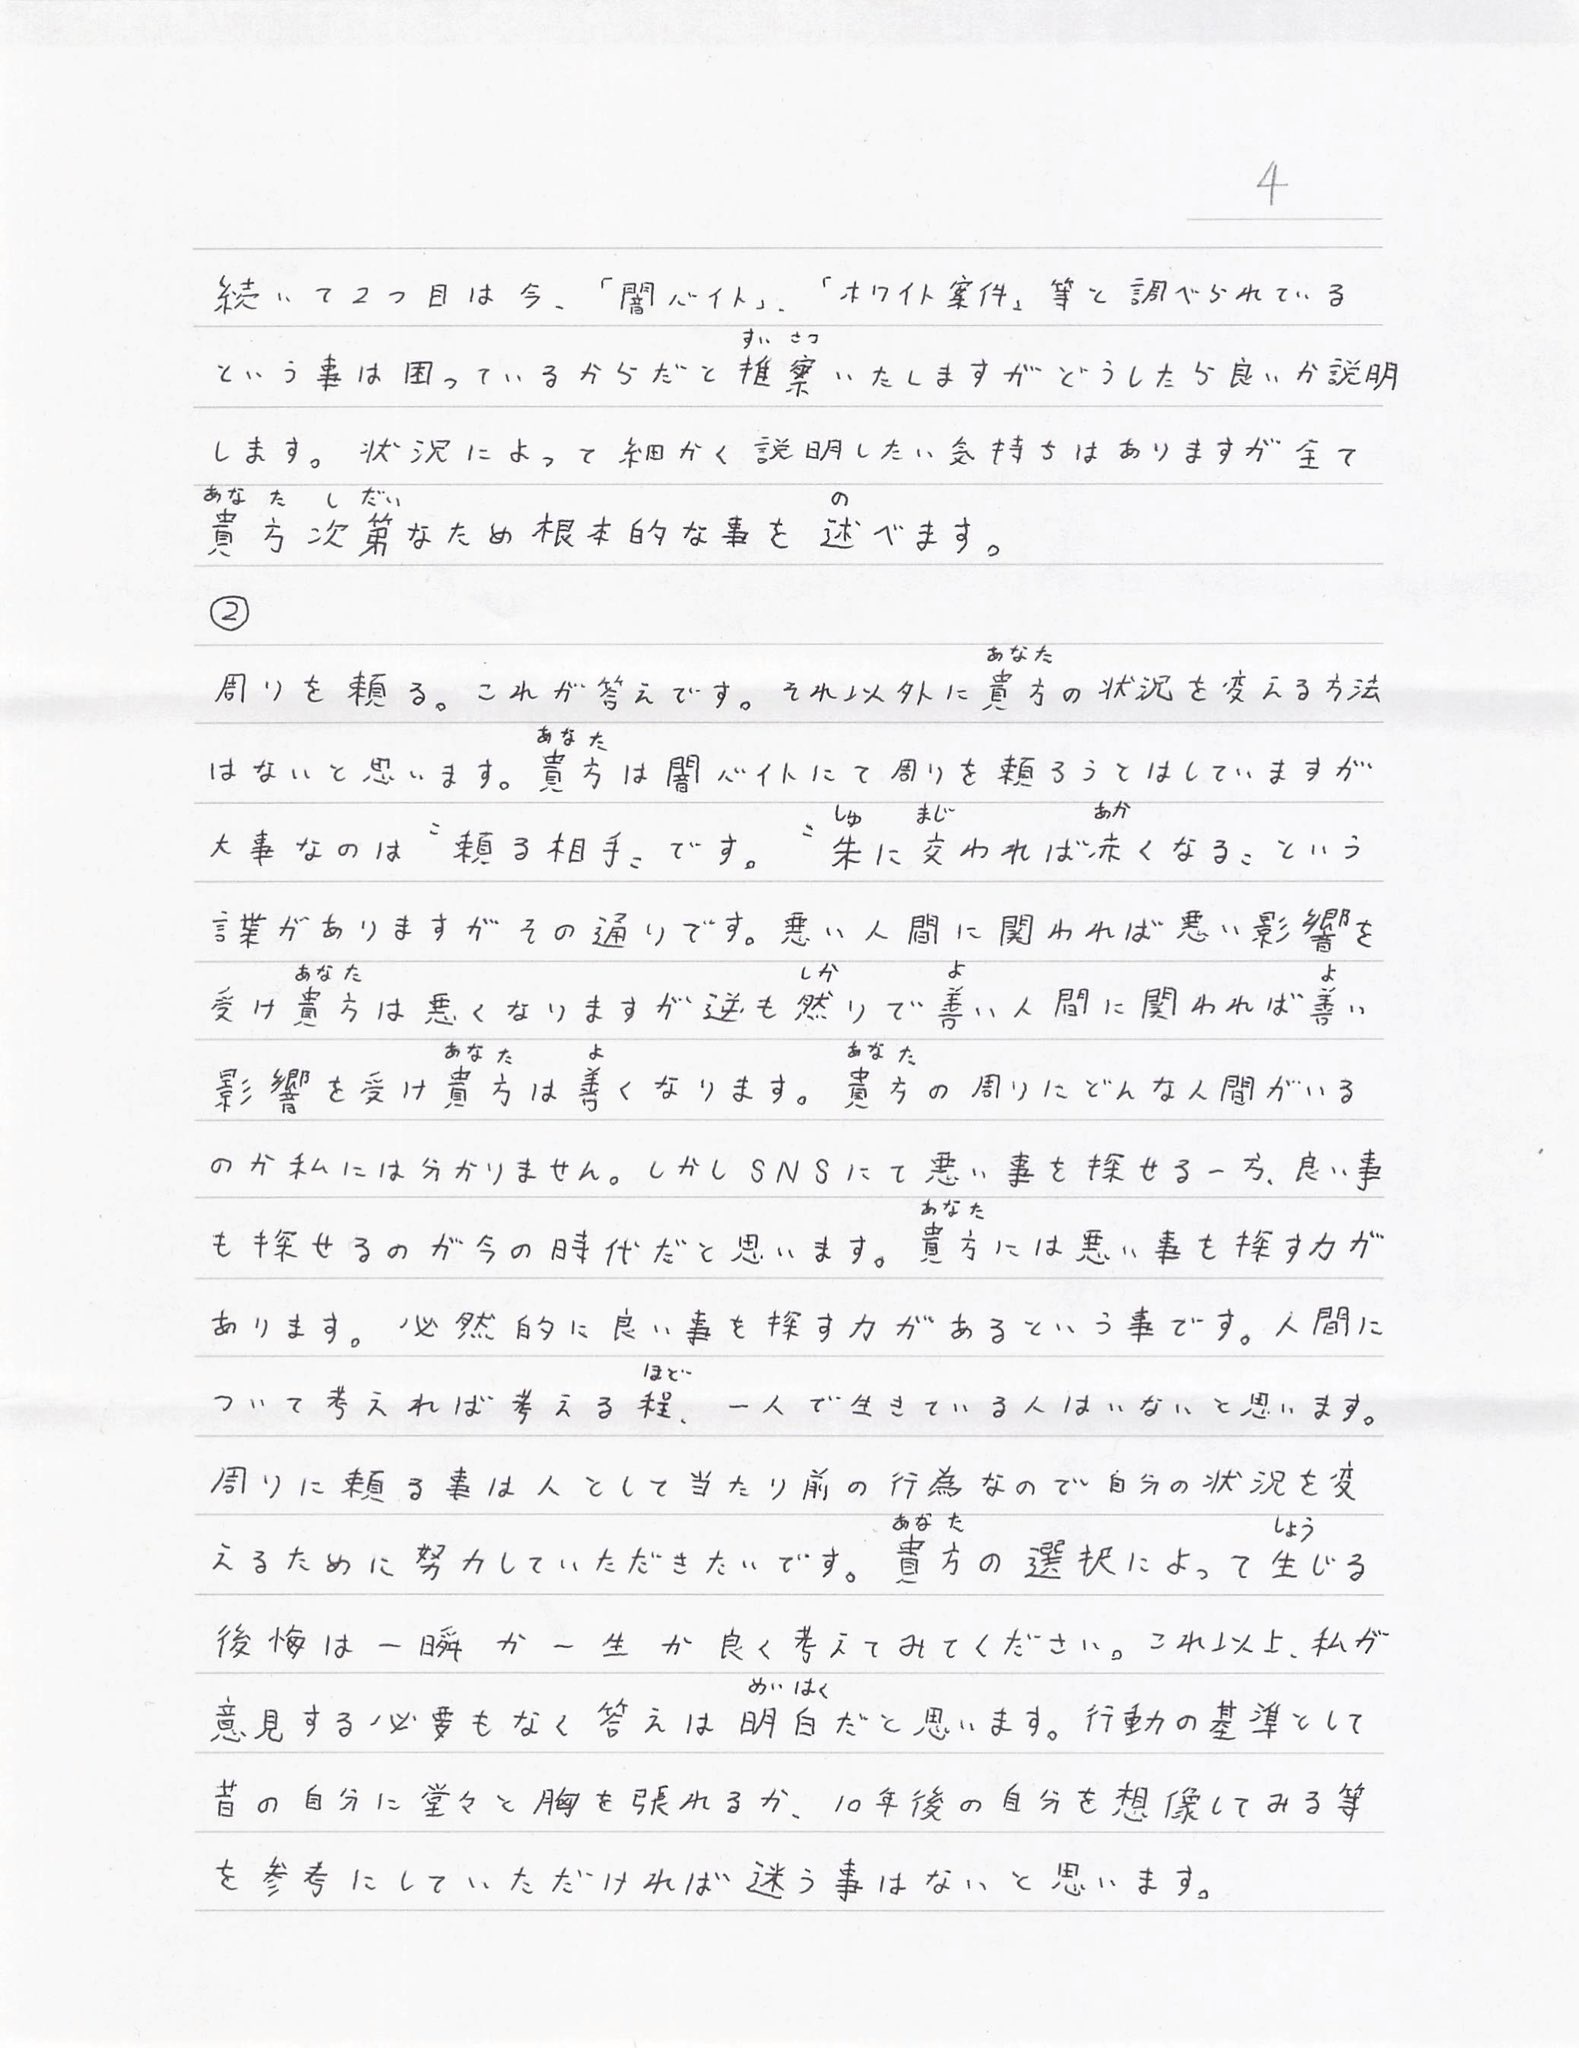 4
続いて2つ目は今、「闇バイト」、「ホワイト案件」等と調べられている
すい さつ
という事は困っているからだと推察いたしますがどうしたら良いか説明
します。状況によって細かく説明したい気持ちはありますが全て
あな た し だい の
貴方次第なため根本的な事を述べます。
②
あなた
周りを頼る。これが答えです。それ以外に貴方の状況を変える方法
あなた
はないと思います。貴方は闇バイトにて周りを頼ろうとはしていますが
しゅ まじ あか
大事なのは〝頼る相手〟です。〝朱に交われば赤くなる〟という
言葉がありますがその通りです。悪い人間に関われば悪い影響を
あなた しか よ よ
受け貴方は悪くなりますが逆も然りで善い人間に関われば善い
あなた よ あなた
影響を受け貴方は善くなります。貴方の周りにどんな人間がいる
のか私には分かりません。しかしSNSにて悪い事を探せる一方、良い事
あなた
も探せるのが今の時代だと思います。貴方には悪い事を探す力が
あります。必然的に良い事を探す力があるという事です。人間に
ほど
ついて考えれば考える程、一人で生きている人はいないと思います。
周りに頼る事は人として当たり前の行為なので自分の状況を変
あなた しょう
えるために努力していただきたいです。貴方の選択によって生じる
後悔は一瞬か一生か良く考えてみてください。これ以上、私が
めい はく
意見する必要もなく答えは明白だと思います。行動の基準として
昔の自分に堂々と胸を張れるか、10年後の自分を想像してみる等
を参考にしていただければ迷う事はないと思います。